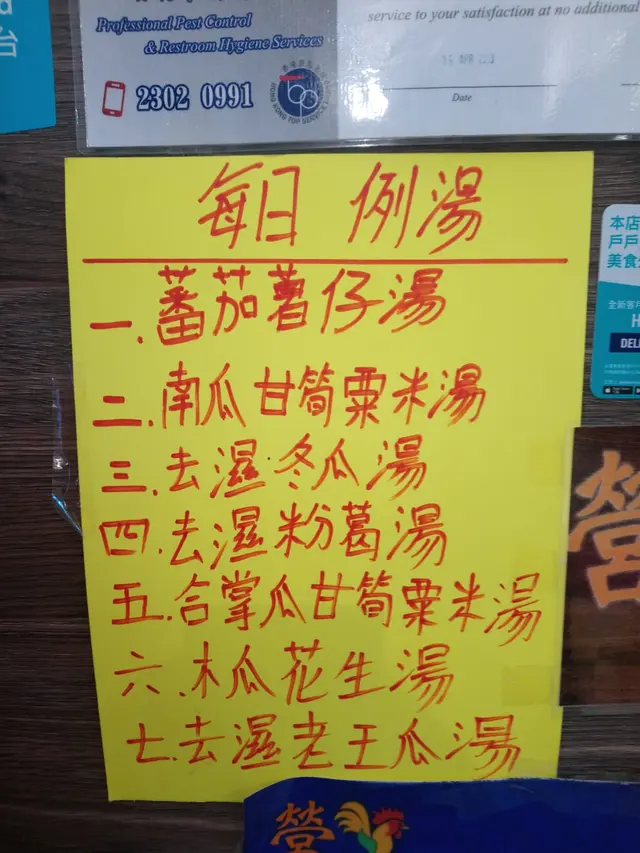 Professional Pest Control
& Restroom Hygiene Services
2302 0991
service to your satisfaction at no additional
Date
台
每日 例湯
一.蕃茄薯仔湯
二.南瓜甘筍粟米湯
三.去濕冬瓜湯
四.去濕粉葛湯
五.合掌瓜甘筍粟米湯
六.木瓜花生湯
七.去濕老王瓜湯
本店
戶戶
美食
DELI
營
營